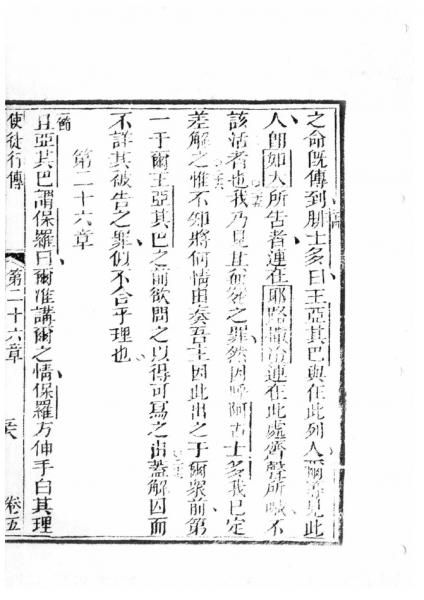 之命既傳到腓士多曰王亞其巴與在此列人爾等見此
人卽如大所告者連在耶路撒冷連在此處齊聲所喊不
該活者也我乃見且何死之罪然因呼阿古士多我已定
差解之惟不知將何情由奏吾主因此出之于爾衆前第
一于爾王亞其巴之前欲問之以得可寫之由蓋解囚而
不詳其被告之罪似不合乎理也
第二十六章
節
且亞其巴謂保羅曰爾准講爾之情保羅方伸手白其理
使徒行傳
第二十六章
卷五